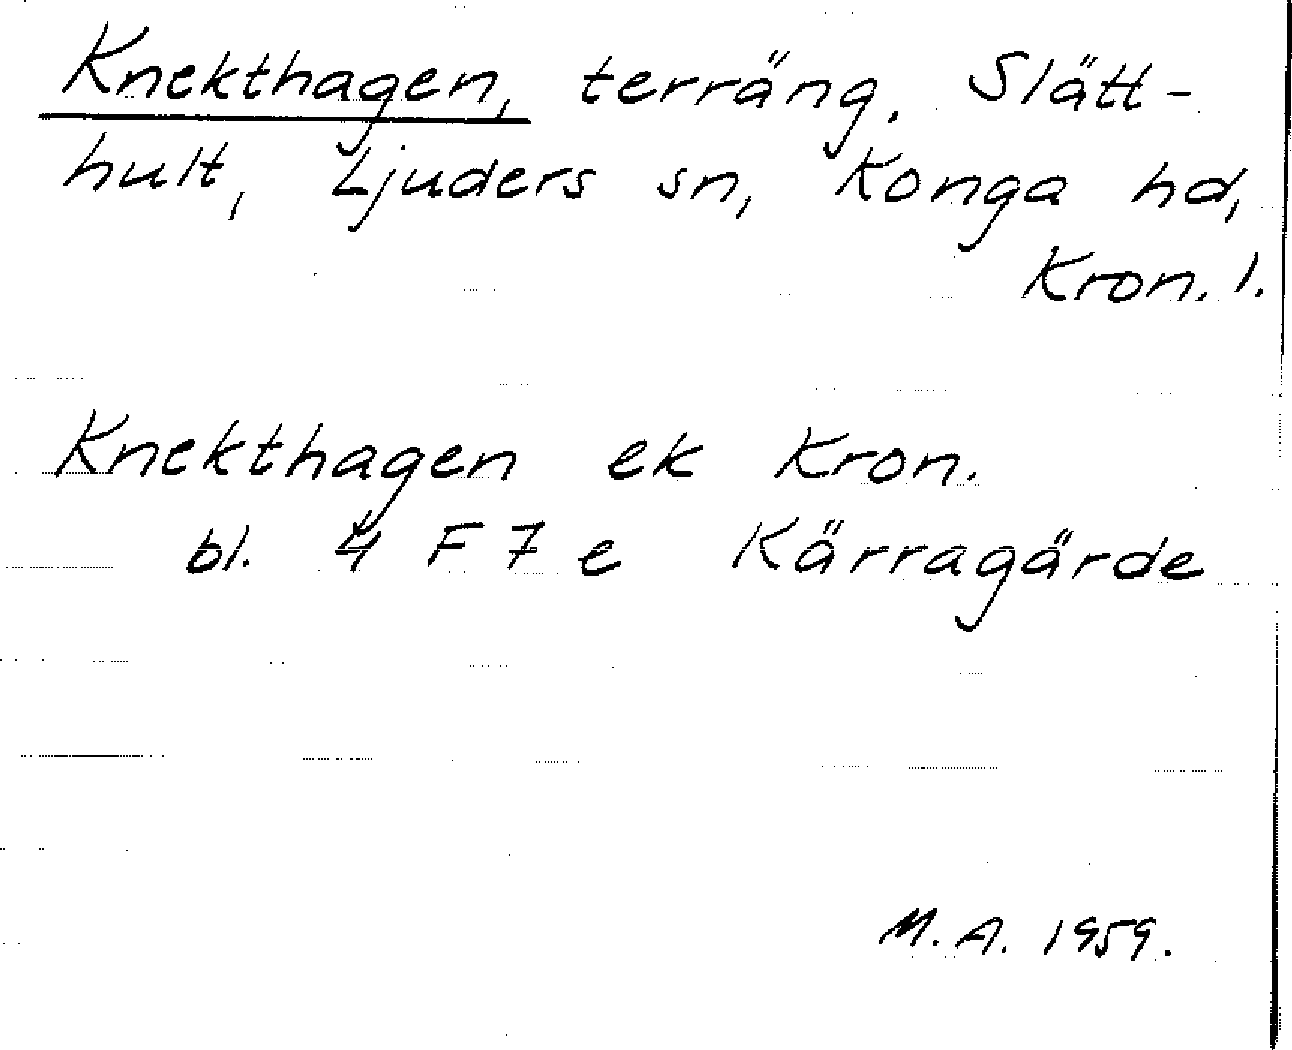 Knekthagen, terräng. Slätt-
hult, Ljuders sn, Konga hd,
Kron. l.
Knekthagen ek Kron.
bl. 4 F 7 e Kärragärde
M. A. 1959.